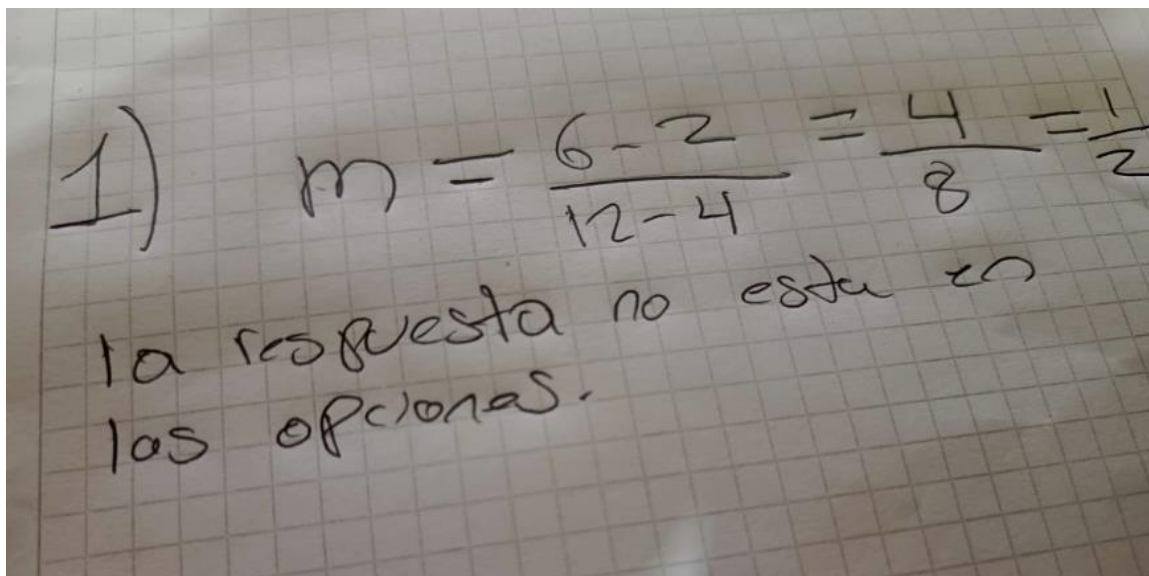 1) m = 6-2/12-4 = 4/8 = 1/2
la respuesta no esta en
las opciones.